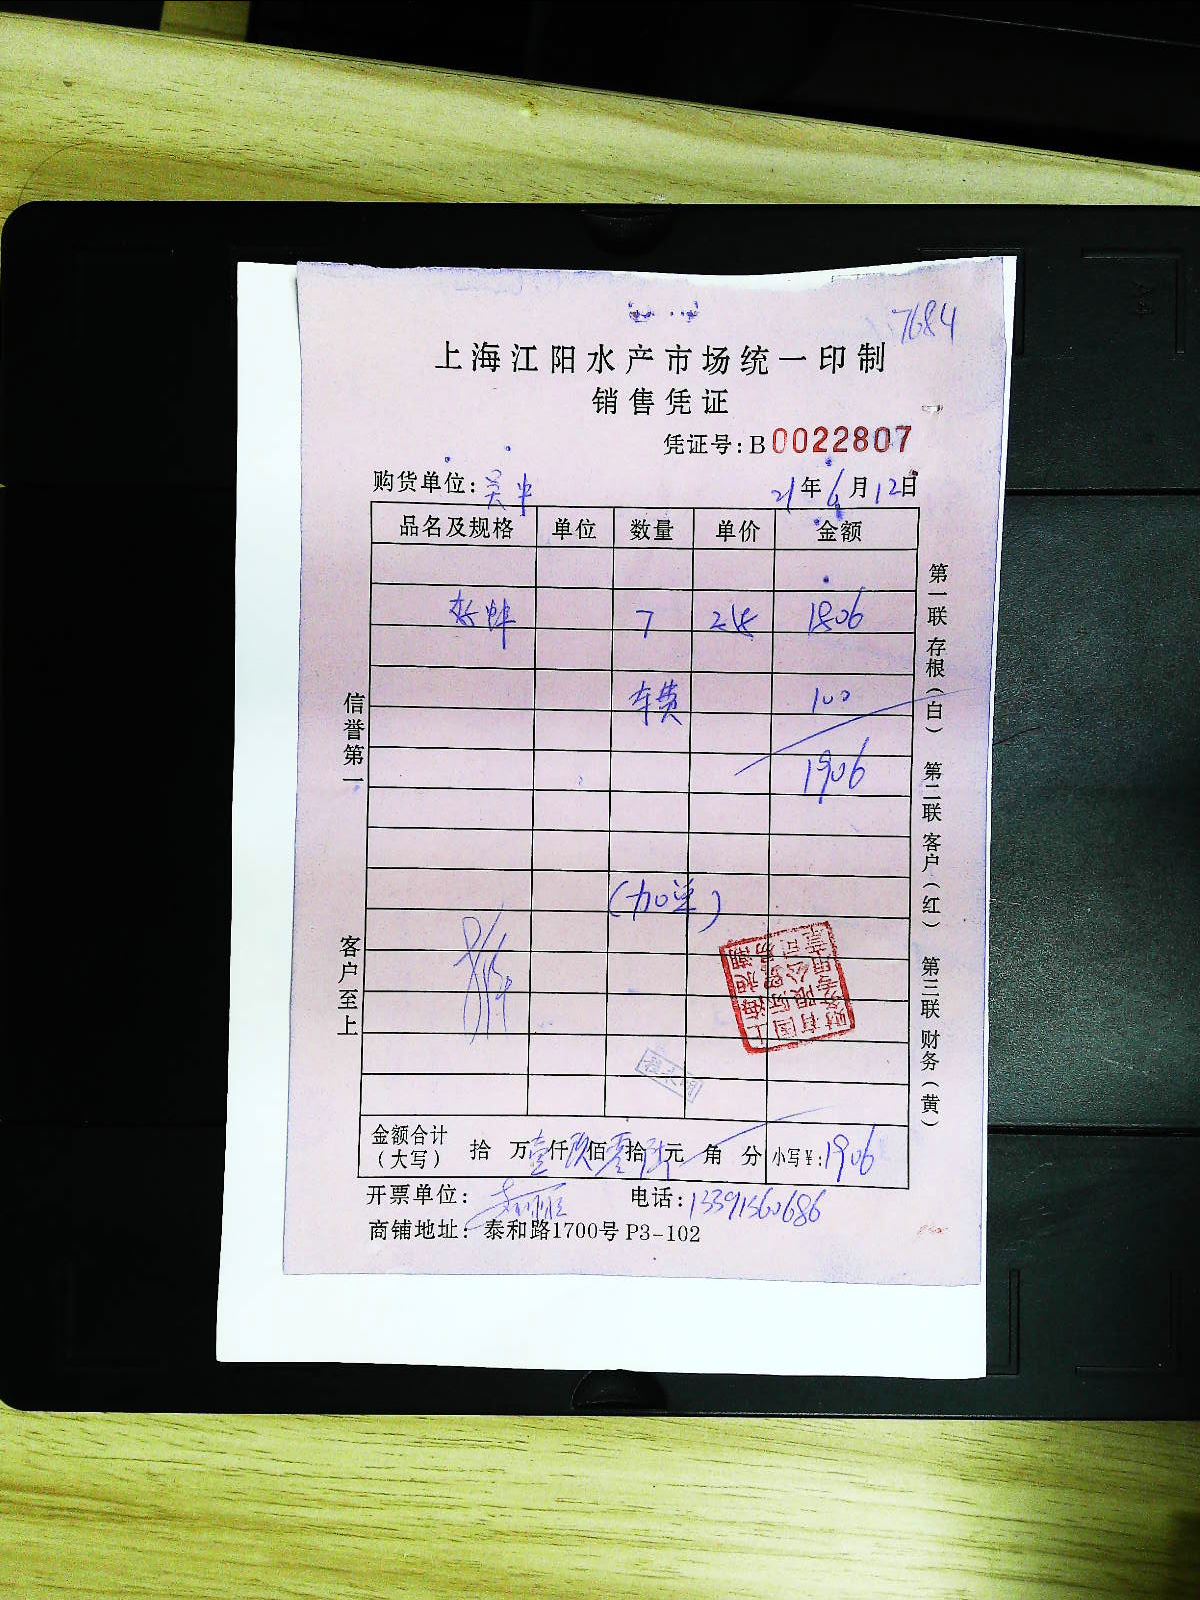 7684
上海江阳水产市场统一印制
销售凭证
凭证号:B0022807
购货单位:吴中 21年6月12日
品名及规格 单位 数量 单价 金额
7 258 1806
车费 100
1906
(加单)
信誉第一
客户至上
第一联 存根(白) 第二联 客户(红) 第三联 财务(黄)
上海昶潮
国际贸易
有限公司
财务专用章
金额合计
(大写) 拾 万壹仟玖佰零拾陆元 角 分 小写¥:1906
开票单位: 电话:13391360686
商铺地址: 泰和路1700号 P3-102